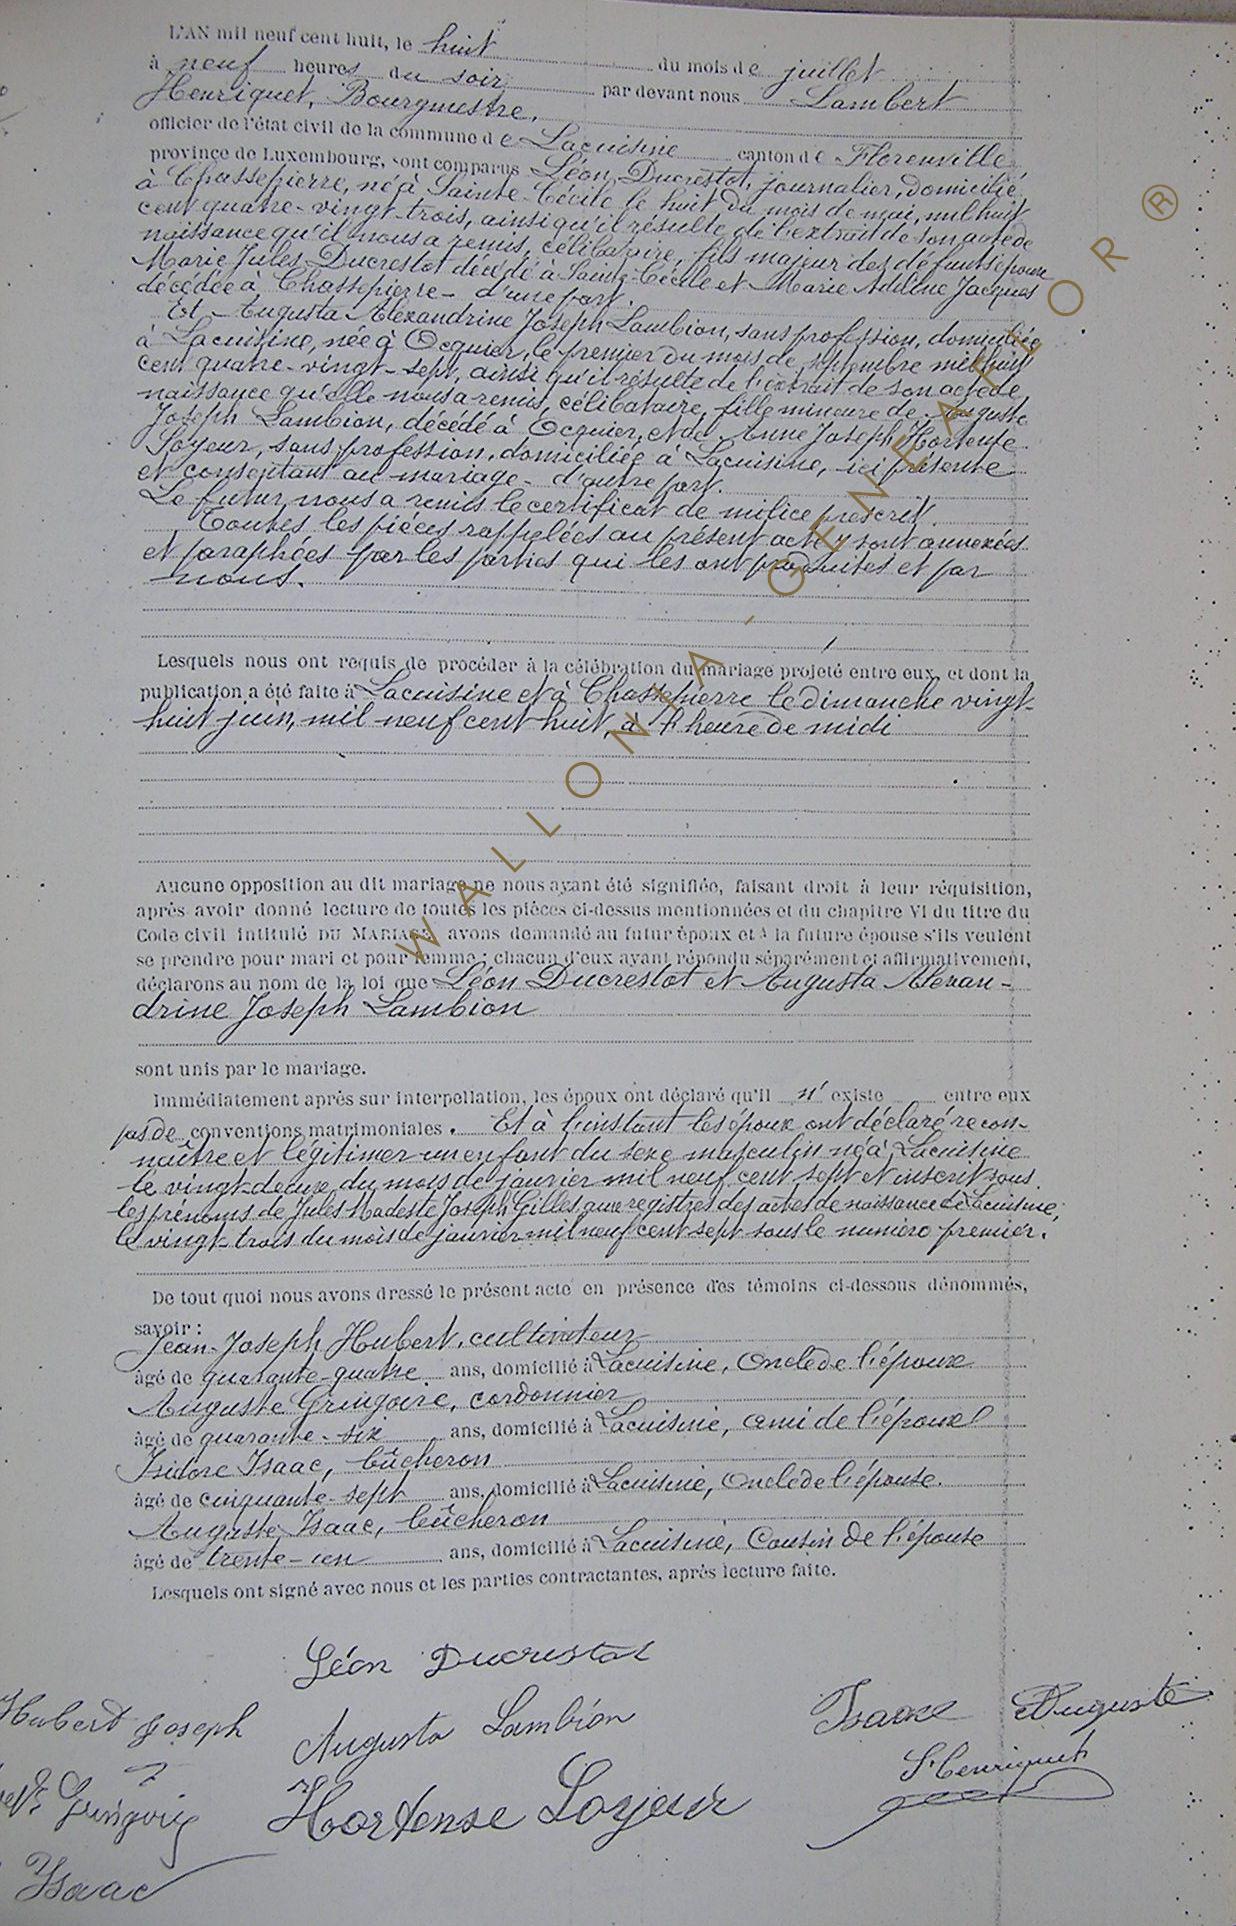 L'AN mil neuf cent huit, le huit du mois de juillet
à neuf heures du soir par devant nous Lambert
Henriquet, Bourgmestre,
officier de l'état civil de la commune de Lacuisine canton de Florenville
province de Luxembourg, sont comparus Léon Ducrestot, journalier, domicilié
à Chassepierre, né à Sainte-Cécile le huit du mois de mai, mil huit
cent quatre-vingt-trois, ainsi qu'il résulte de l'extrait de son acte de
naissance qu'il nous a remis, célibataire, fils majeur des défunts époux
Marie Jules Ducrestot décédé à Sainte-Cécile et Marie Adeline Jacques
décédée à Chassepierre - d'une part.
Et Augusta Alexandrine Joseph Lambion, sans profession, domiciliée
à Lacuisine, née à Ocquier, le premier du mois de septembre mil huit
cent quatre-vingt-sept, ainsi qu'il résulte de l'extrait de son acte de
naissance qu'elle nous a remis, célibataire, fille mineure de Auguste
Joseph Lambion, décédé à Ocquier, et de Anne Joseph Hortense
Loyeur, sans profession, domiciliée à Lacuisine, ici présente
et consentant au mariage - d'autre part.
Le futur nous a remis le certificat de milice prescrit.
Toutes les pièces rappelées au présent acte y sont annexées
et paraphées par les parties qui les ont produites et par
nous.
Lesquels nous ont requis de procéder à la célébration du mariage projeté entre eux, et dont la
publication a été faite à Lacuisine et à Chassepierre le dimanche vingt-
huit juin, mil neuf cent huit, à l'heure de midi
Aucune opposition au dit mariage ne nous ayant été signifiée, faisant droit à leur réquisition,
après avoir donné lecture de toutes les pièces ci-dessus mentionnées et du chapitre VI du titre du
Code civil intitulé DU MARIAGE, avons demandé au futur époux et à la future épouse s'ils veulent
se prendre pour mari et pour femme ; chacun d'eux ayant répondu séparément et affirmativement,
déclarons au nom de la loi que Léon Ducrestot et Augusta Alexan-
drine Joseph Lambion
sont unis par le mariage.
Immédiatement après sur interpellation, les époux ont déclaré qu'il n'existe entre eux
pas de conventions matrimoniales. Et à l'instant les époux ont déclaré recon-
naître et légitimer un enfant du sexe masculin né à Lacuisine
le vingt-deux du mois de janvier mil neuf cent sept et inscrit sous
les prénoms de Jules Modeste Joseph Gilles aux registres des actes de naissance de Lacuisine,
le vingt-trois du mois de janvier mil neuf cent sept sous le numéro premier.
De tout quoi nous avons dressé le présent acte en présence des témoins ci-dessous dénommés,
savoir :
Jean-Joseph Hubert, cultivateur
âgé de quarante-quatre ans, domicilié à Lacuisine, Oncle de l'époux
Auguste Gringoire, cordonnier
âgé de quarante-six ans, domicilié à Lacuisine, ami de l'époux
Isidore Isaac, bûcheron
âgé de cinquante-sept ans, domicilié à Lacuisine, Oncle de l'épouse.
Auguste Isaac, bûcheron
âgé de trente-un ans, domicilié à Lacuisine, Cousin de l'épouse
Lesquels ont signé avec nous et les parties contractantes, après lecture faite.
Léon Ducrestot
Hubert Joseph Augusta Lambion Isaac Auguste
Gringoire Hortense Loyeur L Henriquet
Isaac
WALLONIA-GENEALOR ®